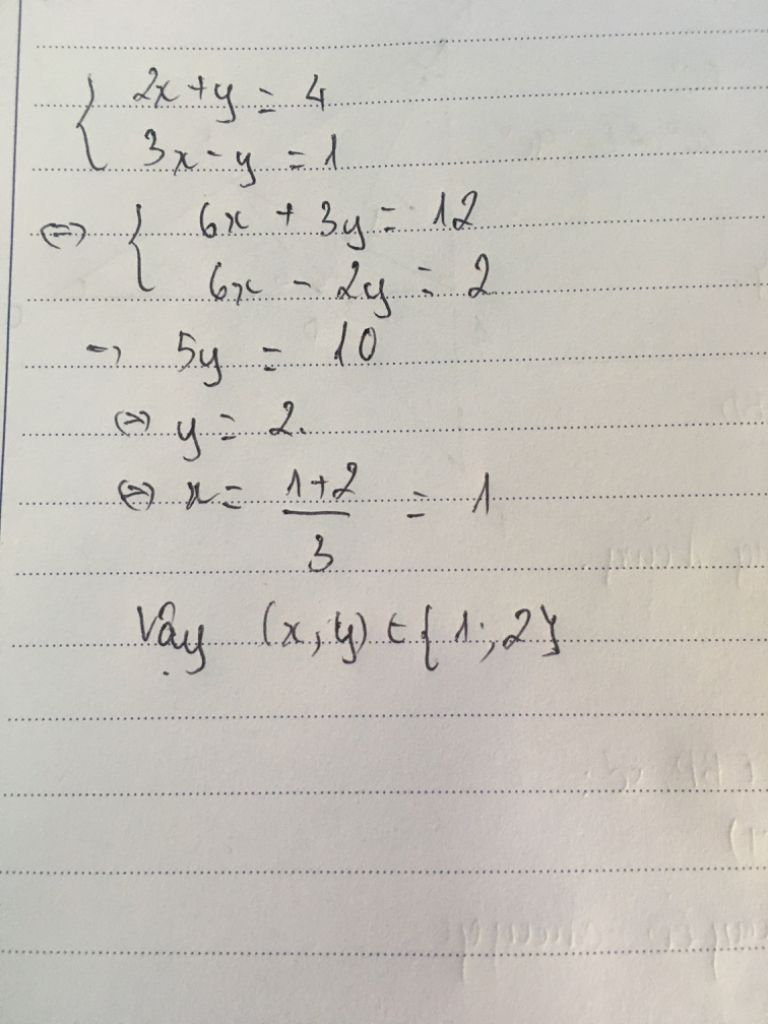 { 2x + y = 4
3x - y = 1
⇔ { 6x + 3y = 12
6x - 2y = 2
→ 5y = 10
⇔ y = 2.
⇔ x = \frac{1+2}{3} = 1
Vậy (x, y) ∈ { 1; 2 }